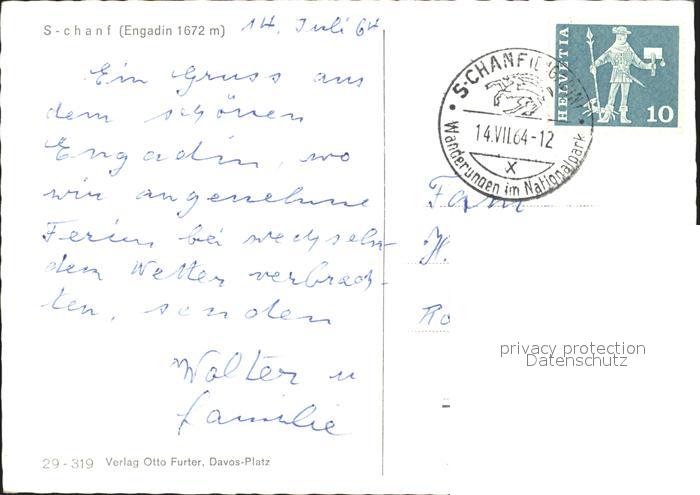 S-chanf (Engadin 1672 m) 14. Juli 64
Ein Gruss aus
dem schönen
Engadin, wo
wir angenehme
Ferien bei wechseln-
dem Wetter verbrach-
ten, senden
Walter u
Familie
29-319 Verlag Otto Furter, Davos-Platz
HELVETIA
10
S-CHANF (ENGADIN)
14.VII.64-12
X
Wanderungen im Nationalpark
Fam
H.
Ro
privacy protection
Datenschutz